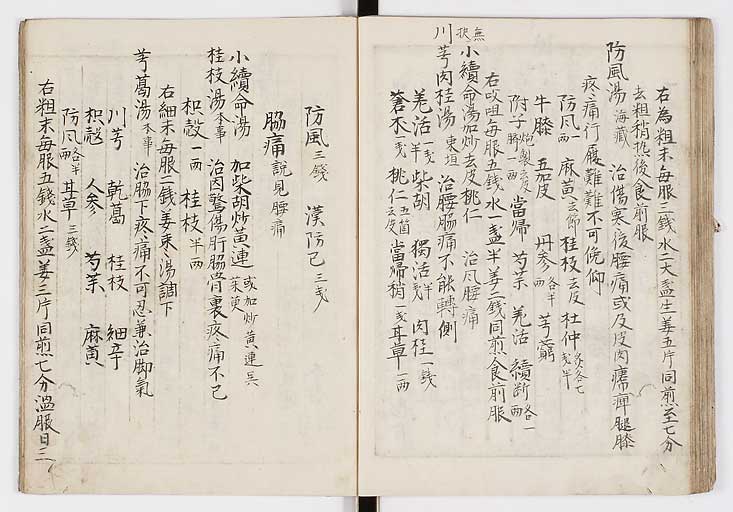 右為粗末每服三錢水二大盞生姜五片同煎至七分
去粗稍热後食前服
防風湯 海藏 治傷寒後腰痛或及皮肉㾪痺腿膝
疼痛行履難難不可俛仰
防風一 麻苗去節 桂枝去皮 杜仲炙各七戔半
牛膝 五加皮 丹参各半 芎藭
附子炮製去皮臍一两 當帰 芍薬 羌活 續断各一两
右㕮咀每服五錢水一盞半姜二錢同煎食前服
小續命湯加炒去皮桃仁 治风腰痛
無択
川芎肉桂湯 東垣 治腰脇痛不能轉側
羌活一戔半 柴胡 獨活戔半 肉桂一錢
蒼朮戔 桃仁五箇去皮 當帰稍一戔 甘草一两
防風三錢 漢防已三戔
脇痛 說見腰痛
小續命湯 加柴胡炒黃連 或加炒黃連呉茱萸
桂枝湯 本事 治因驚傷肝脇骨裏疼痛不已
枳殼一两 桂枝半两
右細末每服二錢姜棗湯調下
芎葛湯 本事 治脇下疼痛不可忍兼治脚氣
川芎 乾葛 桂枝 細辛
枳殼 人参 芍薬 麻黃
防风各半两 甘草三錢
右粗末每服五錢水二盞姜三片同煎七分温服日三